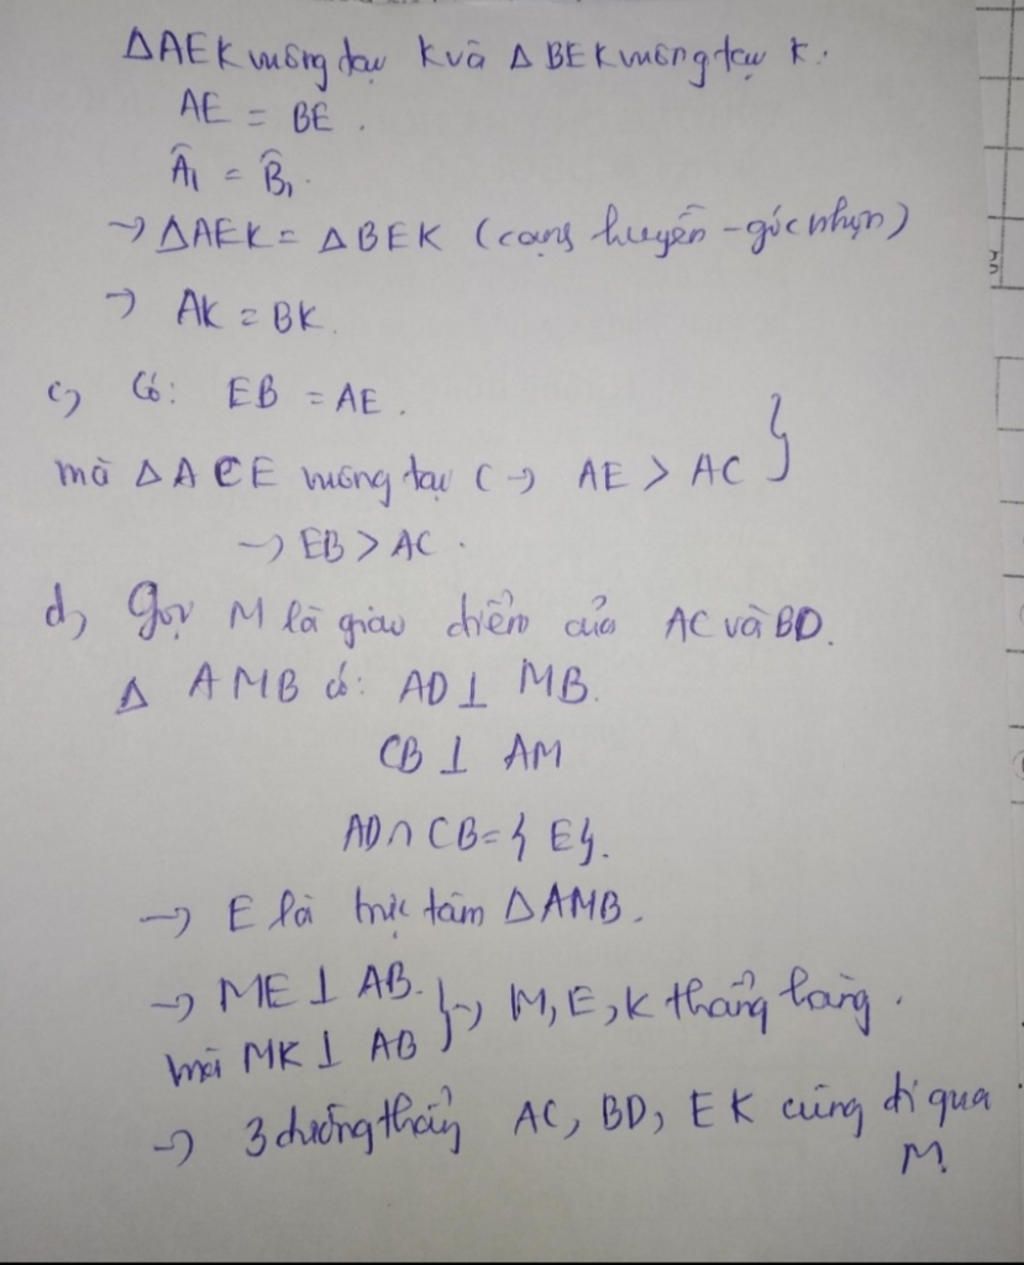 ΔAEK vuông tại K và Δ BEK vuông tại K.
AE = BE.
Â₁ = B̂₁.
→ ΔAEK = ΔBEK (cạnh huyền - góc nhọn)
→ AK = BK.
c, Có: EB = AE.
mà ΔACE vuông tại C → AE > AC }
→ EB > AC.
d, Gọi M là giao điểm của AC và BD.
Δ AMB có: AD ⊥ MB.
CB ⊥ AM
AD ∩ CB = { E }.
→ E là trực tâm ΔAMB.
→ ME ⊥ AB. } → M, E, K thẳng hàng.
mà MK ⊥ AB
→ 3 đường thẳng AC, BD, EK cùng đi qua
M.